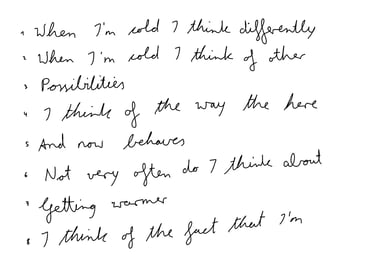 1 When I'm cold I think differently
2 When I'm cold I think of other
3 Possibilities
4 I think of the way the here
5 And now behaves
6 Not very often do I think about
7 Getting warmer
8 I think of the fact that I'm